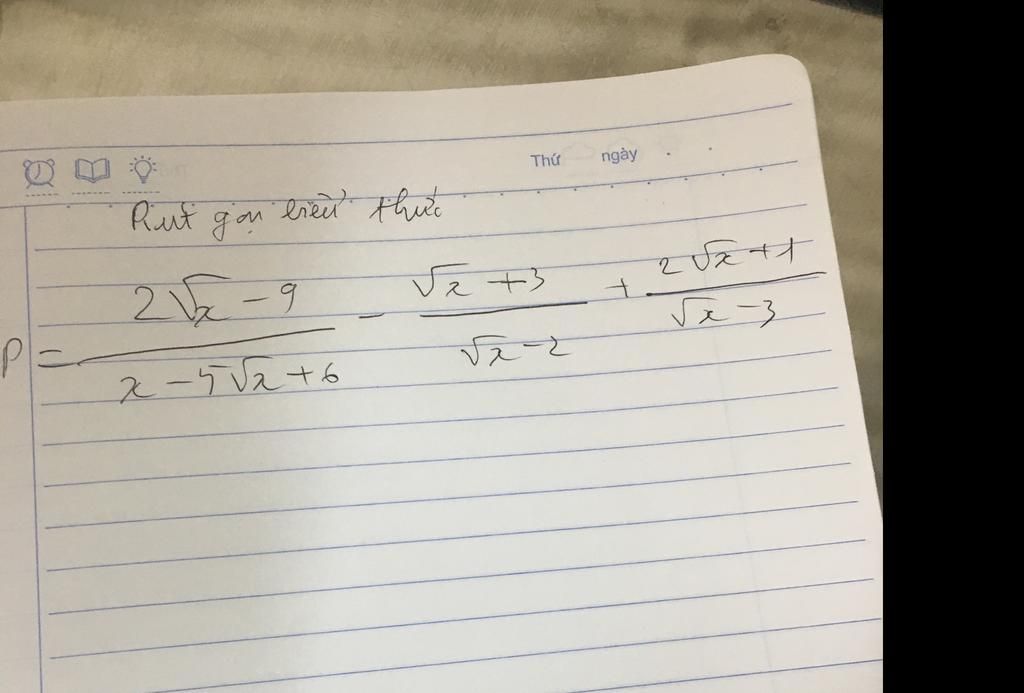 Thứ ngày
Rút gọn biểu thức
P = (2√x - 9)/(x - 5√x + 6) - (√x + 3)/(√x - 2) + (2√x + 1)/(√x - 3)